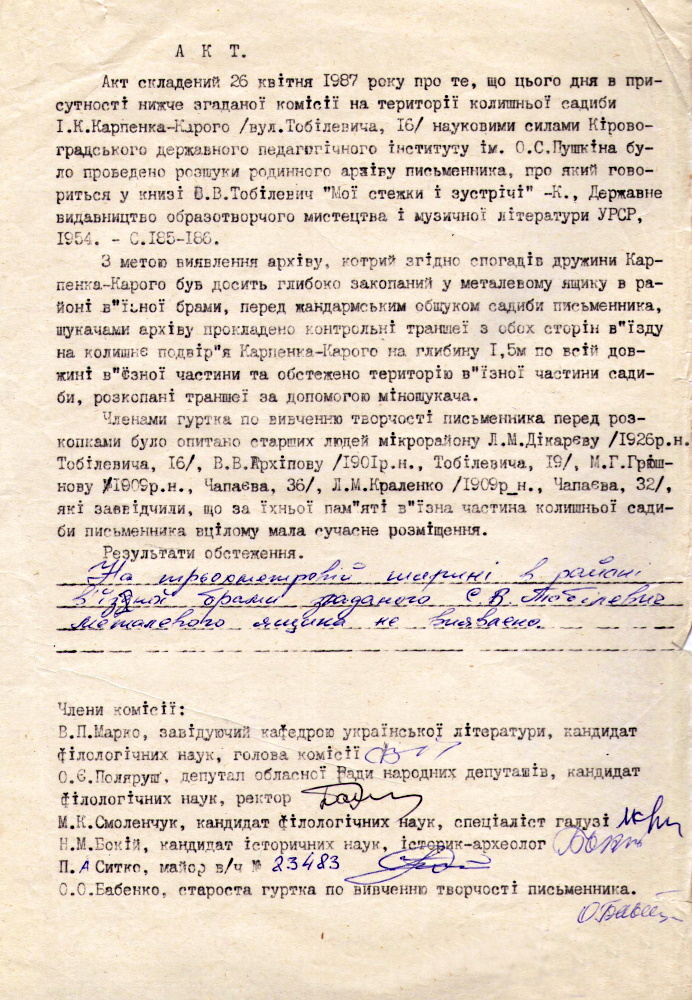 А К Т.
Акт складений 26 квітня 1987 року про те, що цього дня в при-
сутності нижче згаданої комісії на території колишньої садиби
І.К.Карпенка-Карого /вул.Тобілевича, 16/ науковими силами Кірово-
градського державного педагогічного інституту ім. О.С.Пушкіна бу-
ло проведено розшуки родинного архіву письменника, про який гово-
риться у книзі С.В.Тобілевич "Мої стежки і зустрічі" -К., Державне
видавництво образотворчого мистецтва і музичної літератури УРСР,
1954. - С.185-186.
З метою виявлення архіву, котрий згідно спогадів дружини Кар-
пенка-Карого був досить глибоко закопаний у металевому ящику в ра-
йоні в"їзної брами, перед жандармським обшуком садиби письменника,
шукачами архіву прокладено контрольні траншеї з обох сторін в"їзду
на колишнє подвір"я Карпенка-Карого на глибину 1,5м по всій дов-
жині в"їзної частини та обстежено територію в"їзної частини сади-
би, розкопані траншеї за допомогою міношукача.
Членами гуртка по вивченню творчості письменника перед роз-
копками було опитано старших людей мікрорайону Л.М.Дікарєву /1926р.н.
Тобілевича, 16/, В.В.Архіпову /1901р.н., Тобілевича, 19/, М.Г.Грюш-
нову /1909р.н., Чапаєва, 36/, Л.М.Краленко /1909р.н., Чапаєва, 32/,
які засвідчили, що за їхньої пам"яті в"їзна частина колишньої сади-
би письменника вцілому мала сучасне розміщення.
Результати обстеження.
На трьохметровій ширині в районі
в'їзної брами згаданого С.В.Тобілевич
металевого ящика не виявлено.
Члени комісії:
В.П.Марко, завідуючий кафедрою української літератури, кандидат
філологічних наук, голова комісії
О.Є.Поляруш, депутат обласної Ради народних депутатів, кандидат
філологічних наук, ректор
М.К.Смоленчук, кандидат філологічних наук, спеціаліст галузі
Н.М.Бокій, кандидат історичних наук, історик-археолог
П.А Ситко, майор в/ч № 23483
О.О.Бабенко, староста гуртка по вивченню творчості письменника.